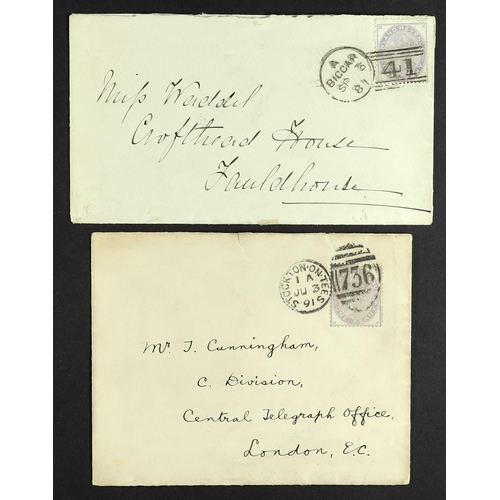 A
BIGGAR
SP 9
81
41
Miss Waddel
Crofthead House
Fauldhouse
STOCKTON-ON-TEES
1 A
JU 3
91
736
Mr. J. Cunningham,
C. Division,
Central Telegraph Office,
London, E.C.